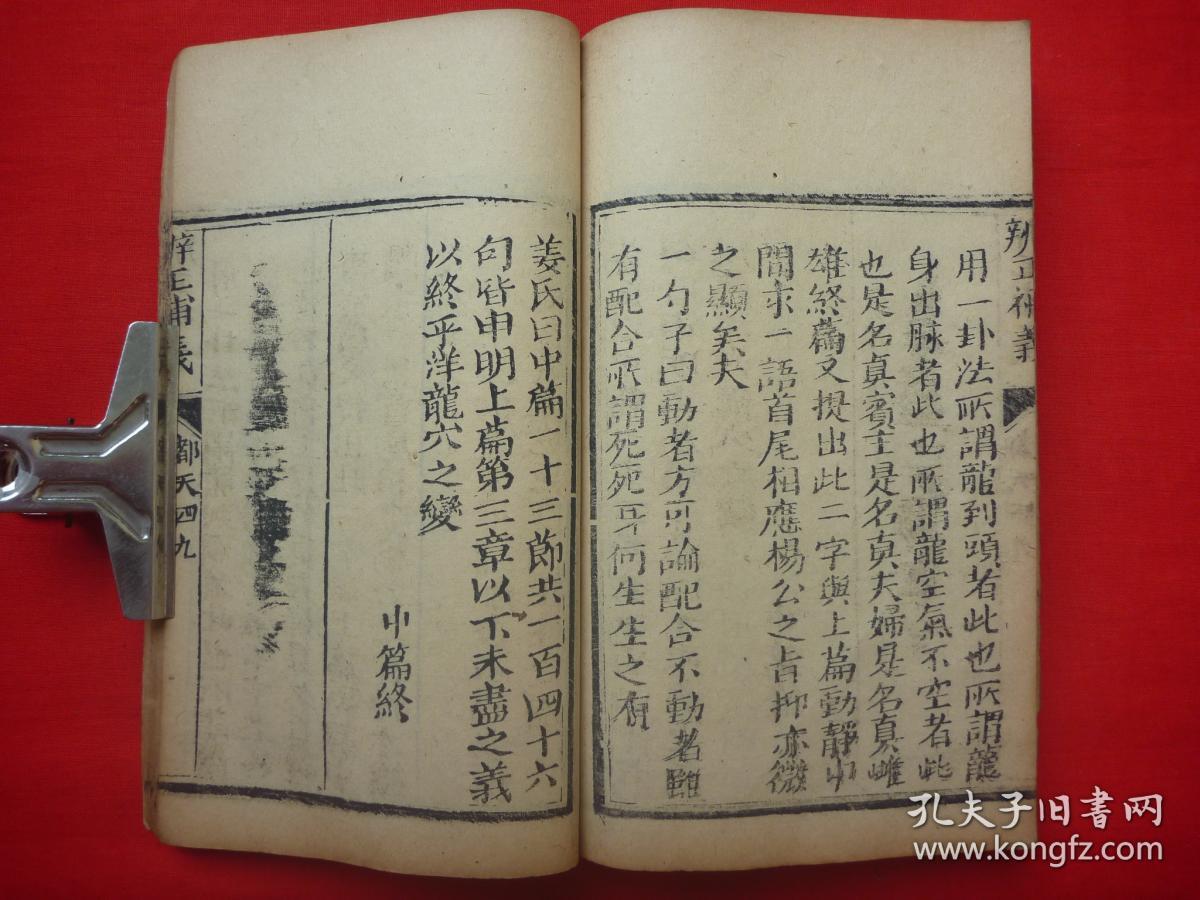 辨正補義
用一卦法所謂龍到頭者此也所謂龍
身出脉者此也所謂龍空氣不空者此
也是名真賓主是名真夫婦是名真雌
雄終篇又提出此二字與上篇動靜中
間求一語首尾相應楊公之㫖抑亦微
之顯矣夫
一勺子曰動者方可論配合不動者雖
有配合所謂死死牙何生生之有
姜氏曰中篇一十三節共一百四十六
句皆申明上篇第三章以下未盡之義
以終平洋龍穴之變
中篇終
辨正補義
都天四九
孔夫子旧书网
www.kongfz.com